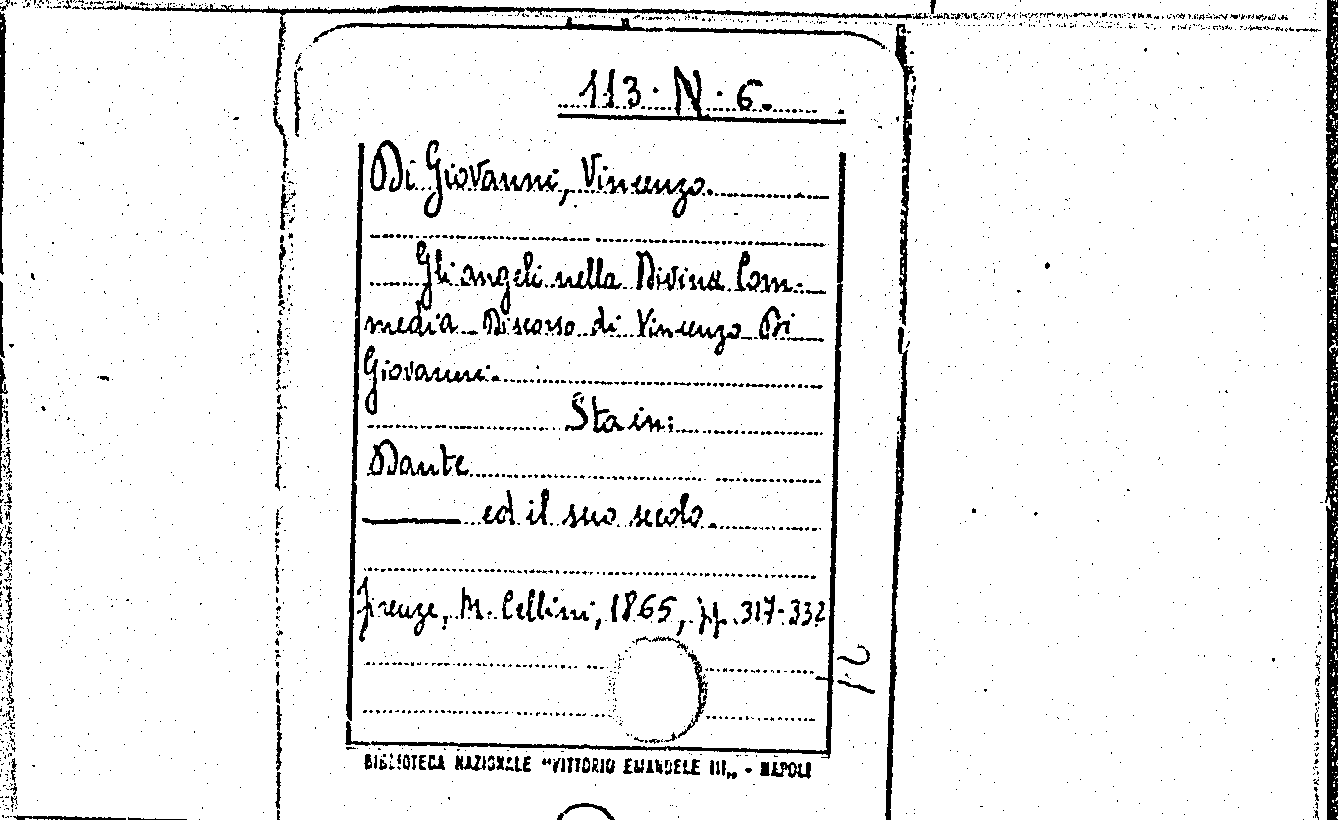 113. N. 6.
Di Giovanni, Vincenzo.
Gli angeli nella Divina Com-
media. Discorso di Vincenzo Di
Giovanni.
Sta in:
Dante
——— ed il suo secolo.
Firenze, M. Cellini, 1865, pp. 317-332
BIBLIOTECA NAZIONALE "VITTORIO EMANUELE III„ - NAPOLI